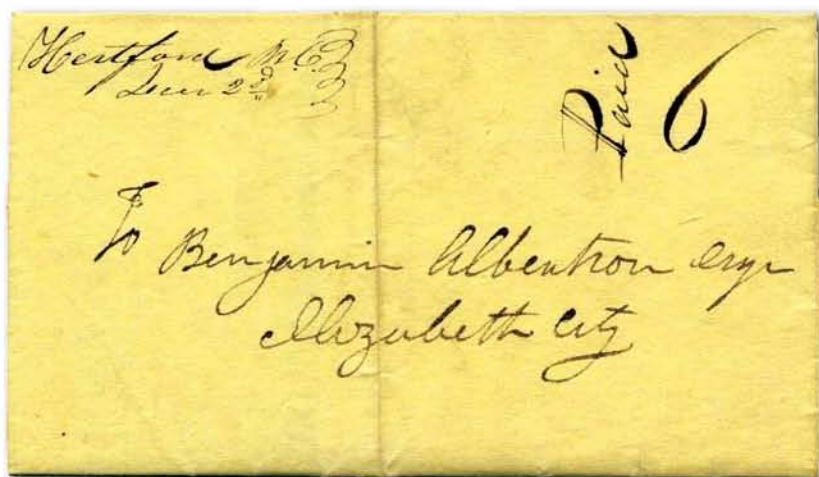 Hertford N.C.
2d
Paid 6
To Benjamin Albertson Esqr
Elizabeth City